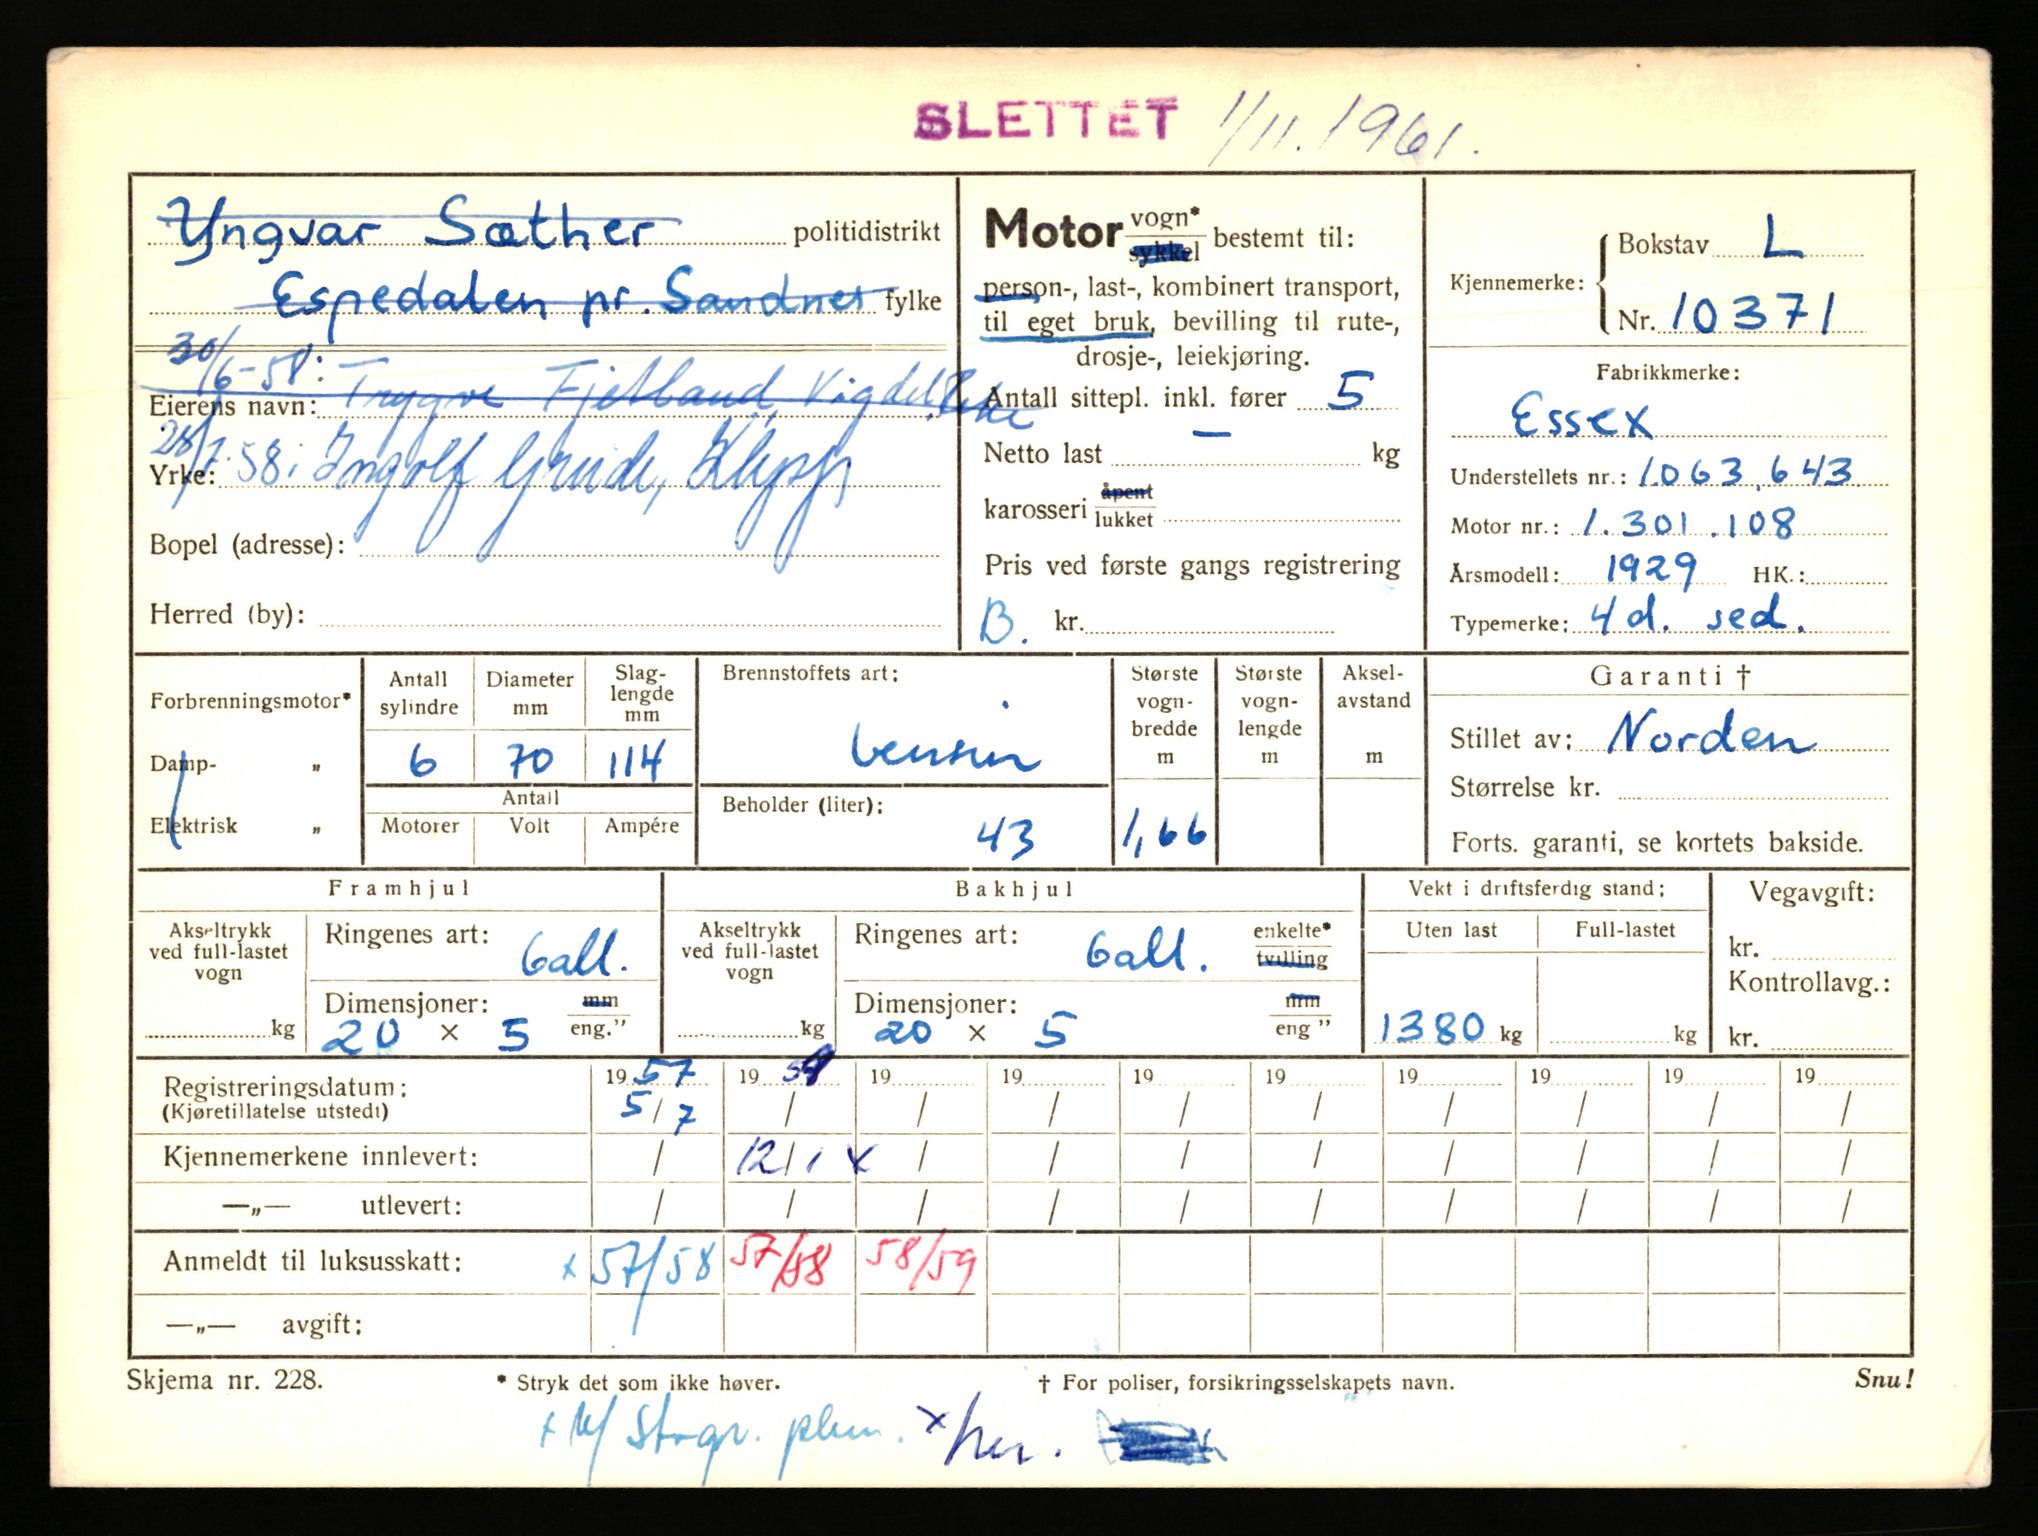 SLETTET 1/11.1961.
Yngvar Sæther politidistrikt
Espedalen pr. Sandnes fylke
30/6-58: Trygve Fjetland, Vigdel.
Eierens navn:
28/7.58: Ingolf Grude, Klepp
Yrke:
Bopel (adresse):
Herred (by):
Motor vogn* sykkel bestemt til:
person-, last-, kombinert transport,
til eget bruk, bevilling til rute-,
drosje-, leiekjøring.
Antall sittepl. inkl. fører 5
Netto last — kg
karosseri åpent lukket
Pris ved første gangs registrering
B. kr.
Kjennemerke: Bokstav L
Nr. 10371
Fabrikkmerke:
Essex
Understellets nr.: 1.063.643
Motor nr.: 1.301.108
Årsmodell: 1929 HK.:
Typemerke: 4 d. sed.
Forbrenningsmotor*
Damp- „
Elektrisk „
Antall sylindre
6
Diameter mm
70
Slag-lengde mm
114
Antall
Motorer Volt Ampére
Brennstoffets art:
bensin
Beholder (liter):
43
Største vogn-bredde m
1,66
Største vogn-lengde m
Aksel-avstand m
Garanti †
Stillet av: Norden
Størrelse kr.
Forts. garanti, se kortets bakside.
Framhjul
Akseltrykk ved full-lastet vogn
kg
Ringenes art: ball.
Dimensjoner: mm
20 × 5 eng."
Bakhjul
Akseltrykk ved full-lastet vogn
kg
Ringenes art: ball. enkelte* tvilling
Dimensjoner: mm
20 × 5 eng "
Vekt i driftsferdig stand:
Uten last Full-lastet
1380 kg kg
Vegavgift:
kr.
Kontrollavg.:
kr.
Registreringsdatum: 19 57 19 59 19 19 19 19 19 19 19 19
(Kjøretillatelse utstedt) 5/7 / / / / / / / / /
Kjennemerkene innlevert: / 12/1 x / / / / / / / /
—„— utlevert: / / / / / / / / / /
Anmeldt til luksusskatt: x 57/58 57/58 58/59
—„— avgift:
Skjema nr. 228. * Stryk det som ikke høver. † For poliser, forsikringsselskapets navn. Snu!
x
x her.